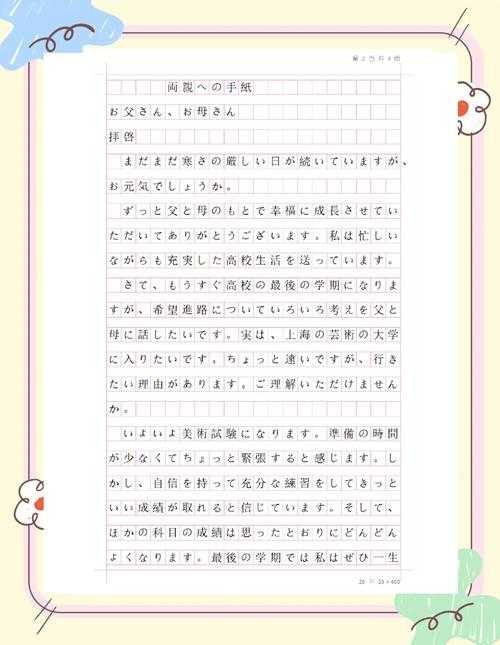 両親への手紙
お父さん、お母さん
拝啓
まだまだ寒さの厳しい日が続いていますが、
お元気でしょうか。
ずっと父と母のもとで幸福に成長させてい
ただいてありがとうございます。私は忙しい
ながらも充実した高校生活を送っています。
さて、もうすぐ高校の最後の学期になりま
すが、希望進路についていろいろ考えを父と
母に話したいです。実は、上海の芸術の大学
に入りたいです。ちょっと遠いですが、行き
たい理由があります。ご理解いただけません
か。
いよいよ美術試験になります。準備の時間
が少なくてちょっと緊張すると感じます。し
かし、自信を持って充分な練習をしてきっと
いい成績が取れると信じています。そして、
ほかの科目の成績は思ったとおりにどんどん
よくなります。最後の学期では私はぜひ一生
20 × 20 = 400